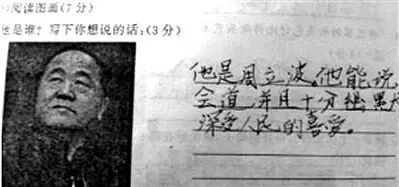 阅读图画(7分)
他是谁？写下你想说的话:(3分)
他是周立波。他能说
会道，并且十分幽默
深受人民的喜爱。